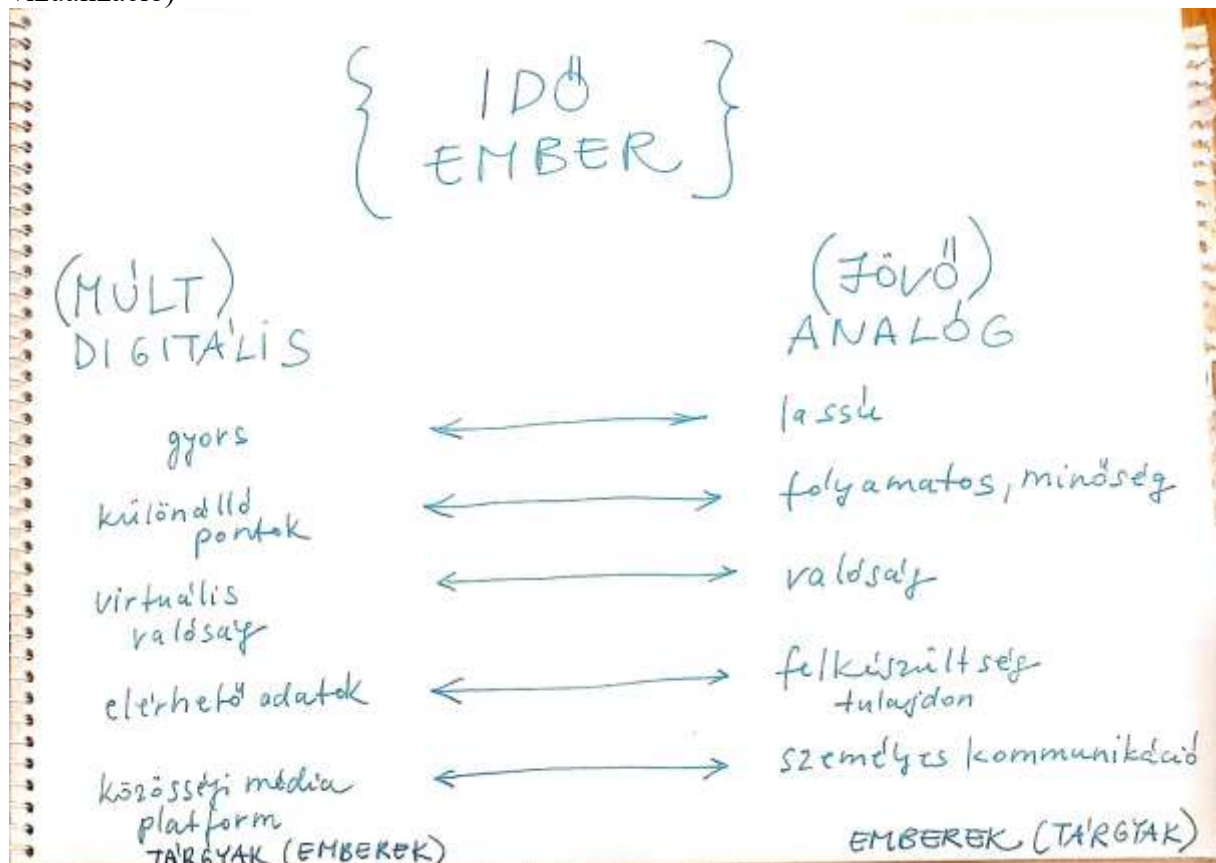 IDŐ
EMBER
(MÚLT)
DIGITÁLIS
(JÖVŐ)
ANALÓG
gyors
lassú
különálló
pontok
folyamatos, minőség
virtuális
valóság
valóság
elérhető adatok
felkészültség
tulajdon
közösségi média
platform
személyes kommunikáció
TÁRGYAK (EMBEREK)
EMBEREK (TÁRGYAK)